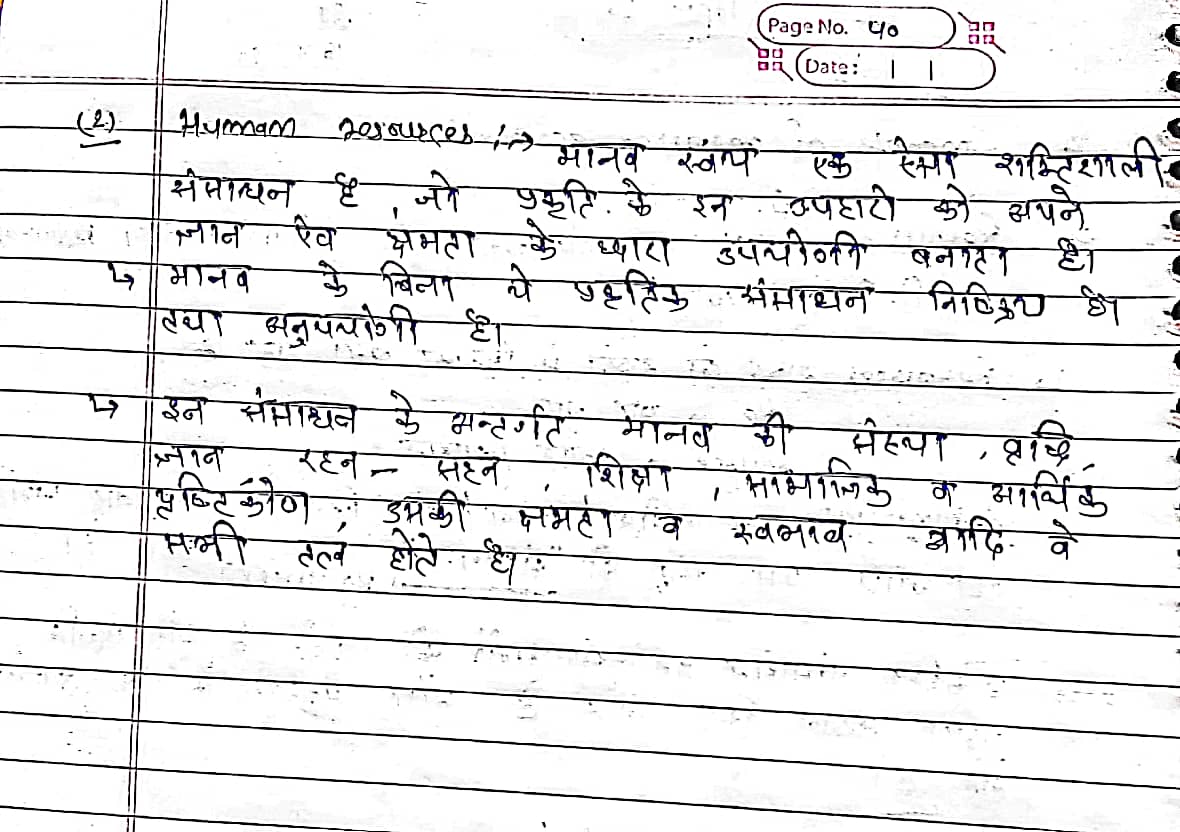 Page No. 40
Date: | |
(2.) Human resources :→ मानव स्वंय एक ऐसा शक्तिशाली
संसाधन है, जो प्रकृति के इन उपहारो को अपने
ज्ञान ऐव क्षमता के ध्वारा उपयोगी बनाता है।
↳ मानव के बिना ये प्रकृतिक संसाधन निष्क्रिय है।
तथा अनुपयोगी है।
↳ इन संसाधन के अन्तर्गत मानव की संख्या, वृद्धि,
ज्ञान रहन - सहन, शिक्षा, सामाजिक व आर्थिक
दृष्टिकोण, उसकी क्षमता व स्वभाव आदि वे
सभी तत्व होते है।